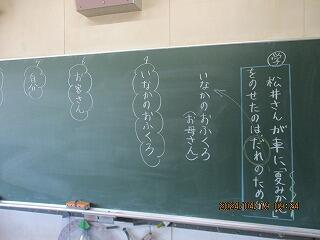 学
松井さんが車に「夏みかん」
をのせたのはだれのため
いなかのおふくろ
(お母さん)
4
いなかのおふくろ
6
お客さん
7
自分